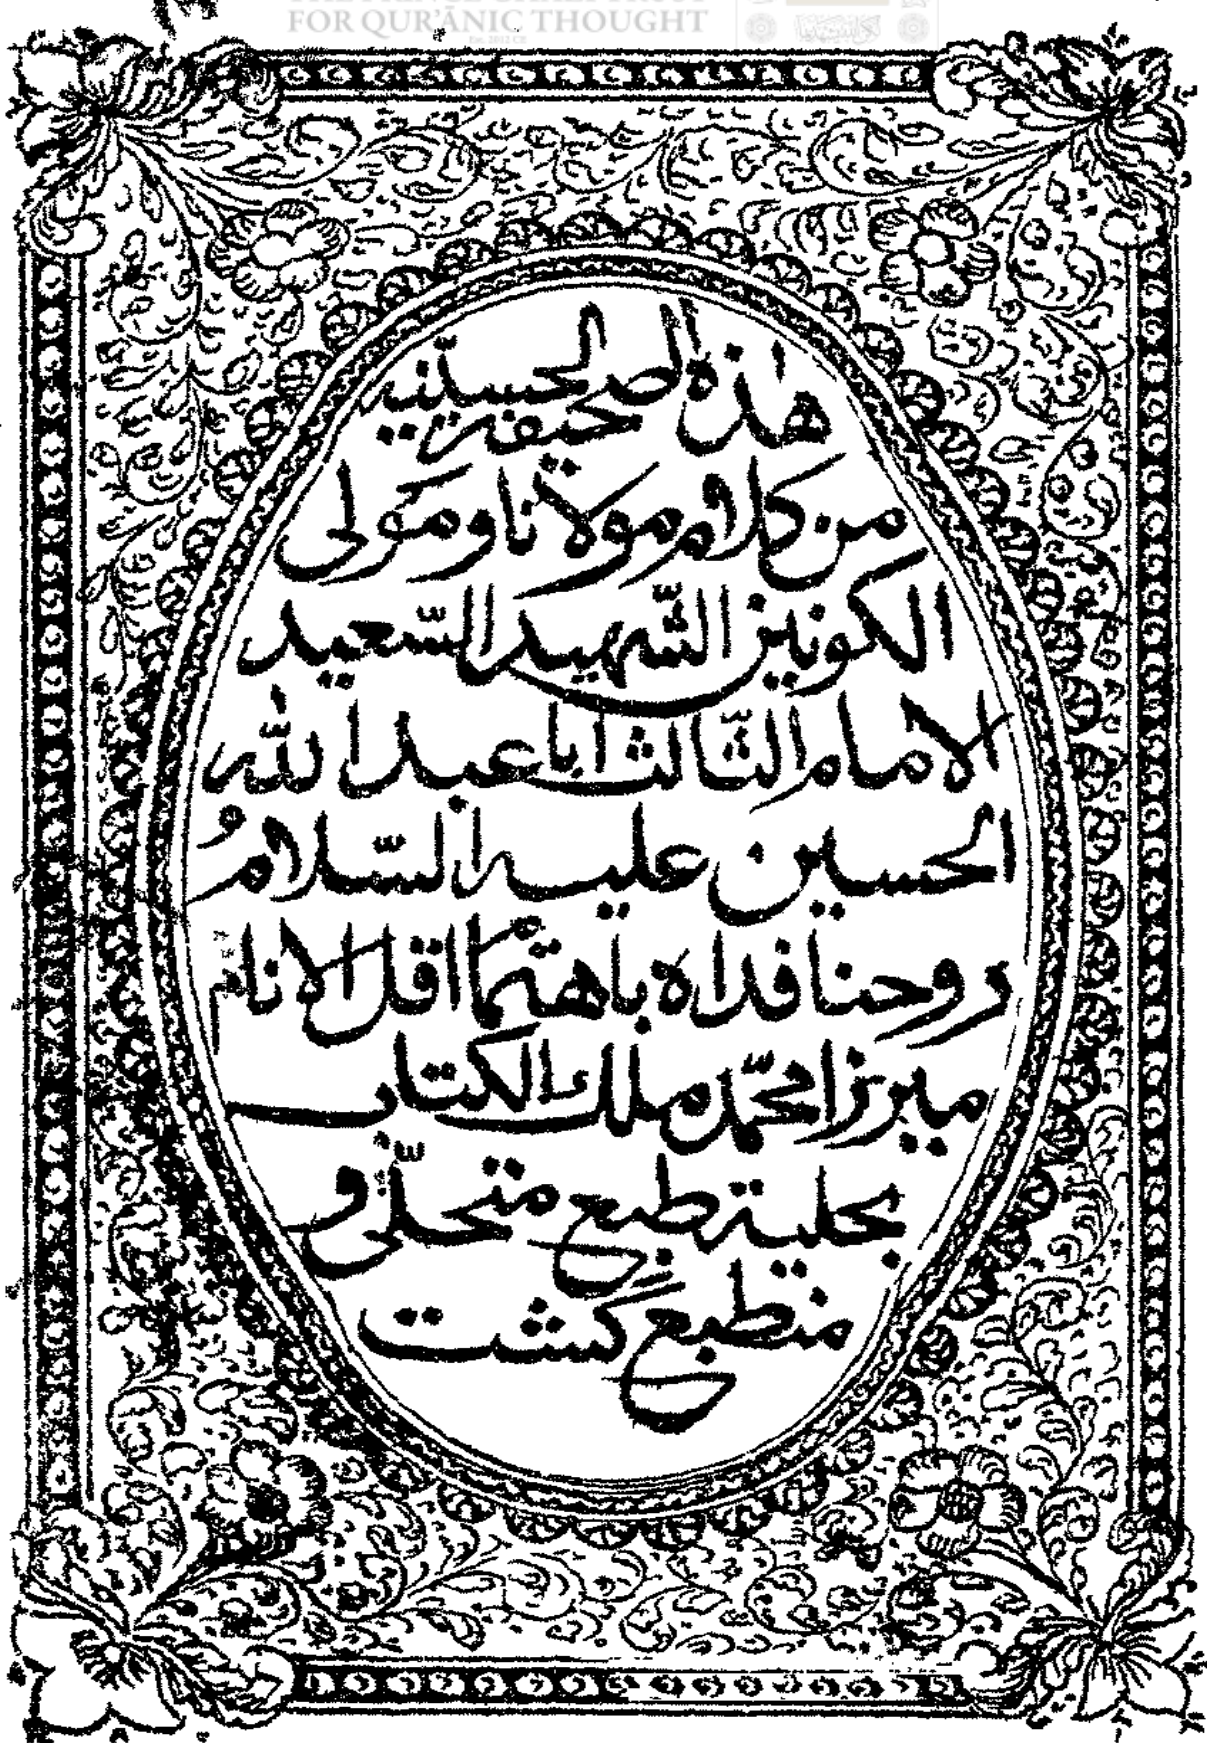 FOR QUR'ĀNIC THOUGHT
هذه الصحيفة الحسينيه
من كلام مولانا ومولى
الكونين الشهيد السعيد
الامام الثالث ابا عبد الله
الحسين عليه السلامُ
روحنا فداه باهتمام اقل الانام
ميرزا محمّد ملك الكتاب
بحلية طبع متحلّى و
منطبع گشت